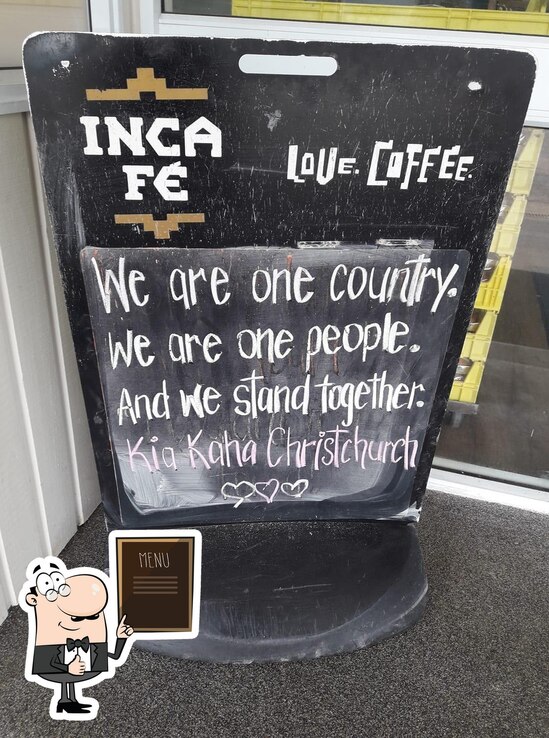 INCA
FÉ
LOVE. COFFEE.
We are one country.
We are one people.
And we stand together.
Kia Kaha Christchurch
MENU